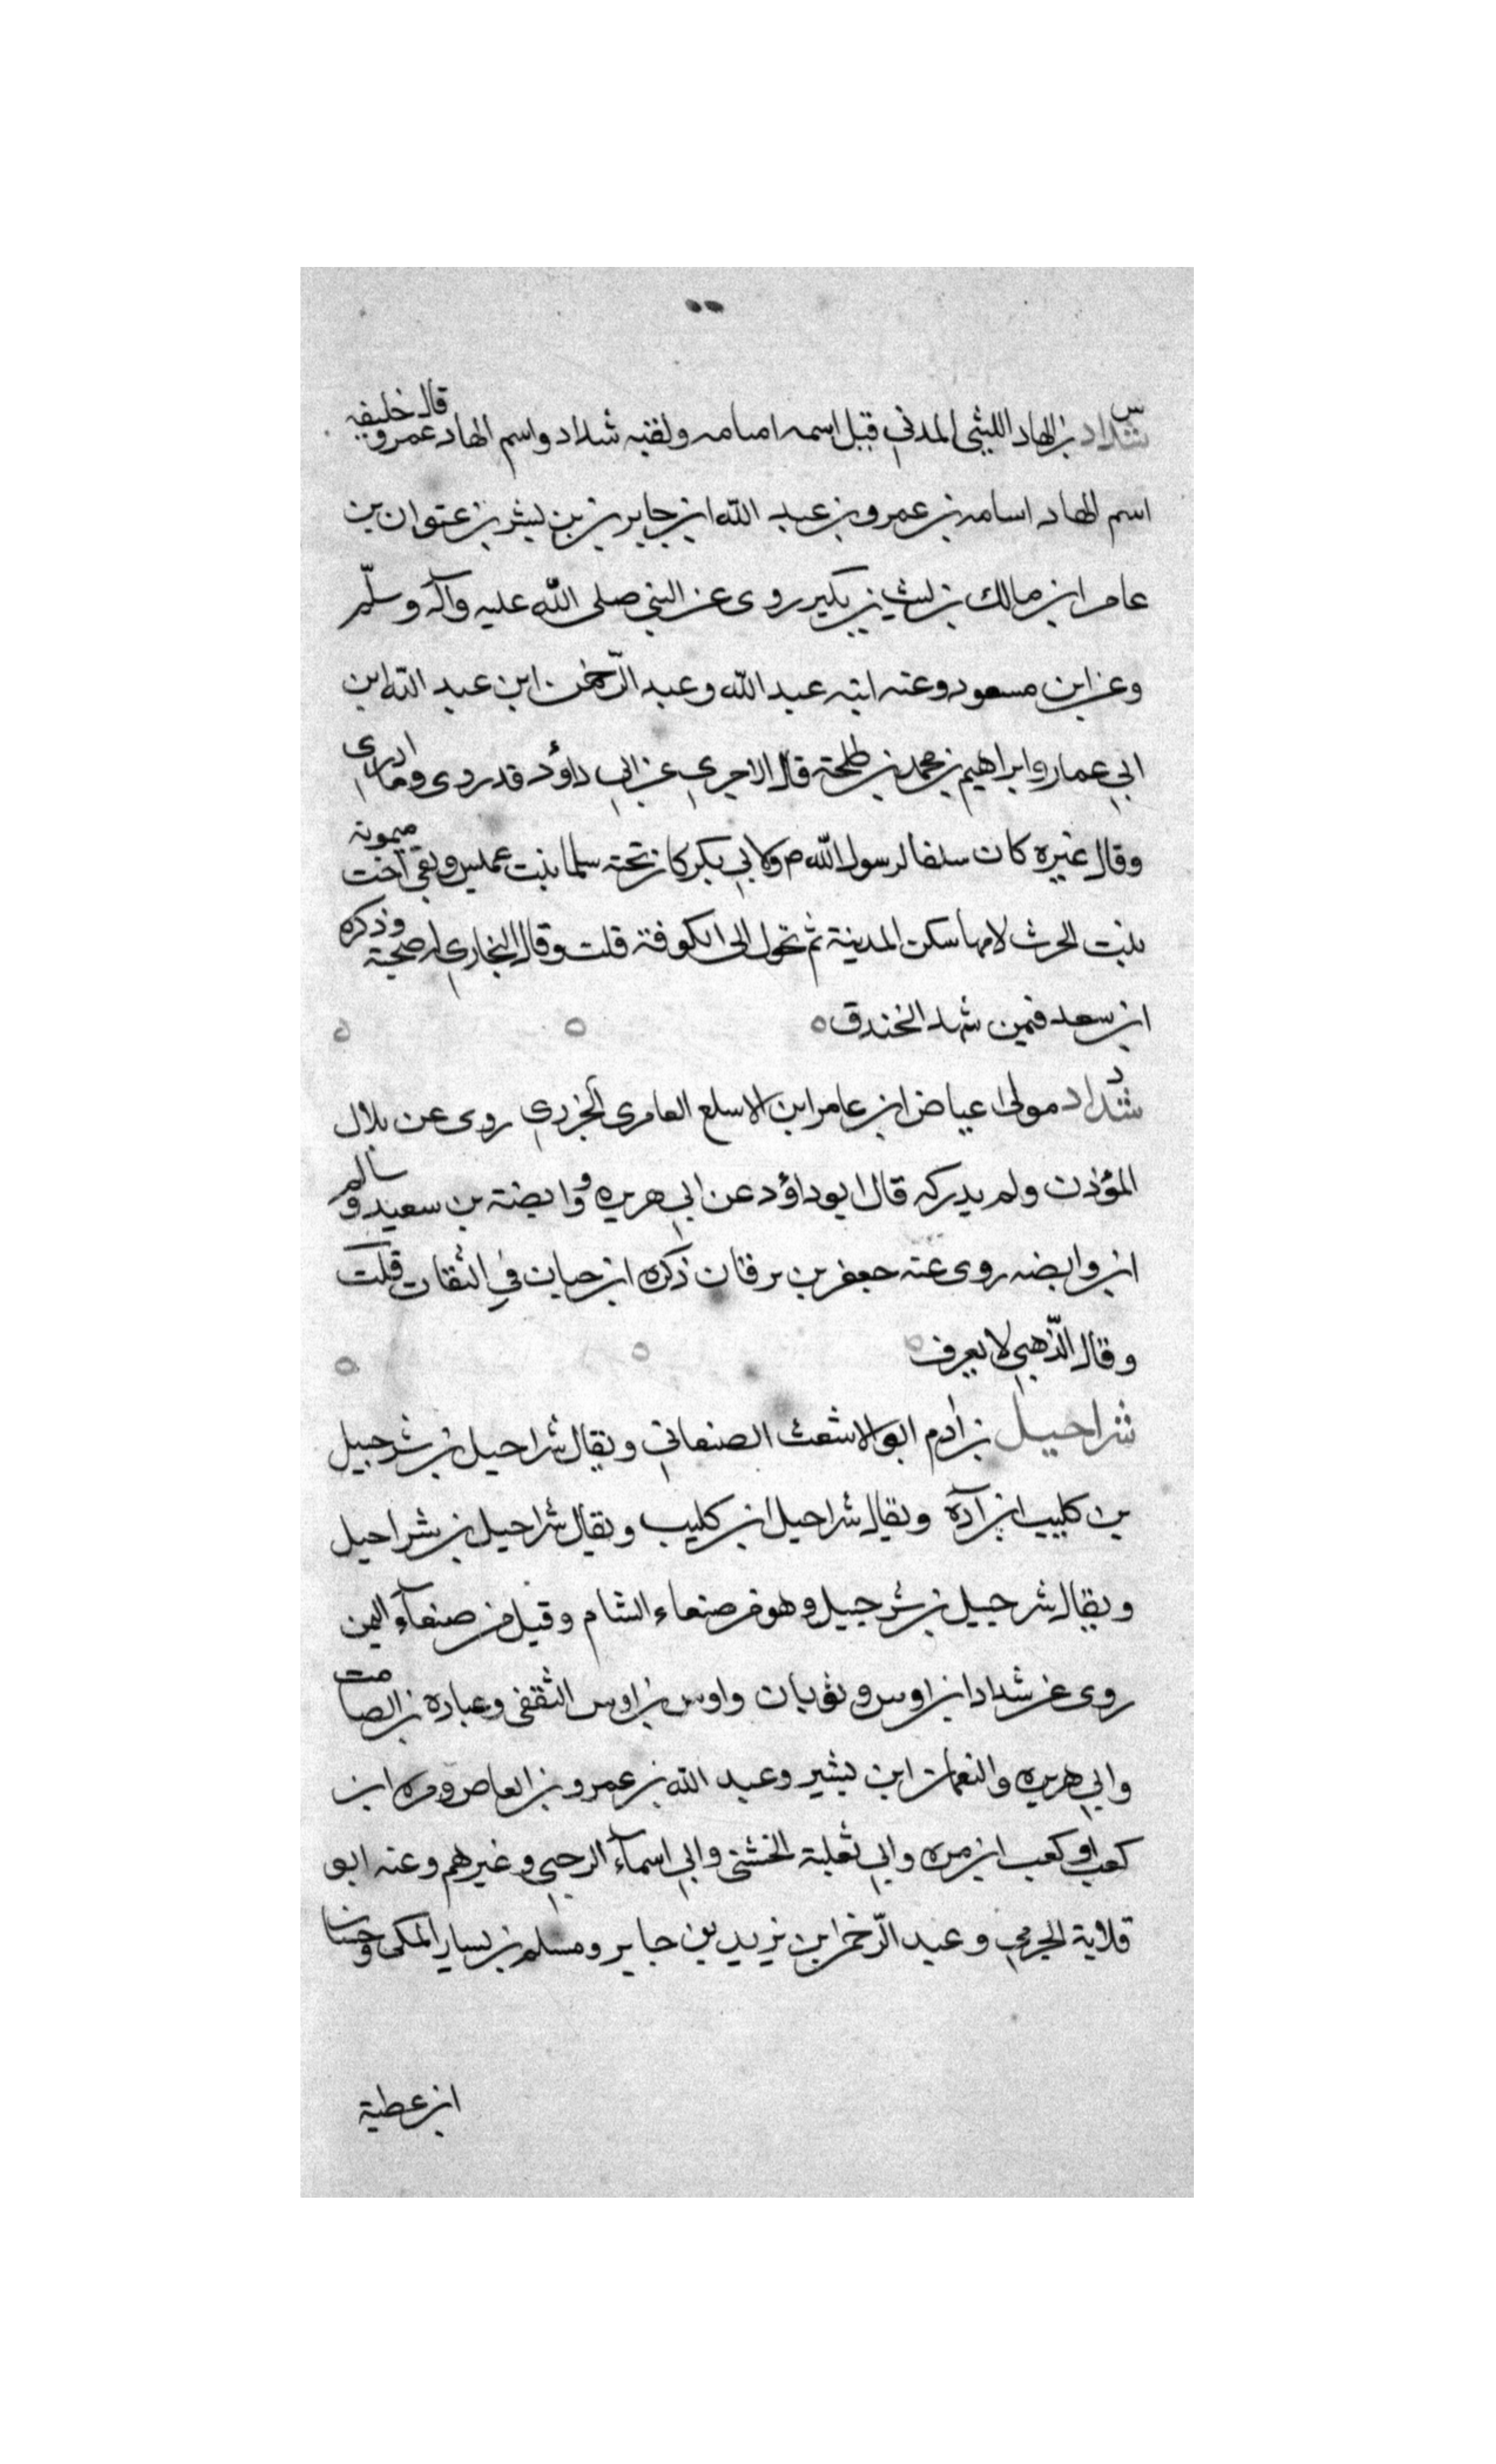 س
شداد بن الهاد الليثي المدني قيل اسمه اسامه ولقبه شداد واسم الهاد عمرو قال خليفه
اسم الهاد اسامه بن عمرو بن عبد الله ابن جابر بن بن بشر بن عتوان بن
عامر ابن مالك بن ليث بن بكير روى عن النبي صلى الله عليه وآله وسلّم
وعن ابن مسعود وعنه ابنه عبد الله وعبد الرّحمن ابن عبد الله ابن
ابي عمار وابراهيم بن محمد بن طلحة قال الاجري عن ابي داؤد قد روى وما ادرى
وقال غيره كان سلفا لرسول الله ص ولابي بكر كان تحته سلما بنت عميس وبقي اخت ميمونه
بنت الحرث لامها سكن المدينة ثم تحول الى الكوفة قلت وقال البخاري له صحبة وذكره
ابن سعد فيمن شهد الخندق
د
شداد مولى عياض ابن عامر ابن الاسلع العامري الجزري روى عن بلال
المؤذن ولم يدركه قال ابو داؤد عن ابي هريره و وابصة بن سعيد و سالم
ابن وابصه روى عنه جعفر بن برقان ذكره ابن حبان في الثقات قلت
وقال الذّهبي لا يعرف
شراحيل بن ادم ابو الاشعث الصنعاني ويقال شراحيل بن شرحبيل
بن كليب ابن آدة ويقال شراحيل ابن كليب ويقال شراحيل بن شراحيل
ويقال شرحبيل بن شرحبيل وهو من صنعاء الشام وقيل من صنعآء اليمن
روى عن شداد ابن اوس وثوبان واوس بن اوس الثقفي وعباده بن الصامت
وابي هريره والنعمان ابن بشير وعبد الله بن عمرو بن العاص ومره ابن
كعب او كعب ابن مره وابي ثعلبة الخشني وابي اسمآء الرحبي وغيرهم وعنه ابو
قلابة الجرمي وعبد الرّحمن ابن يزيد بن جابر ومسلم بن يسار المكي وحسان
ابن عطية